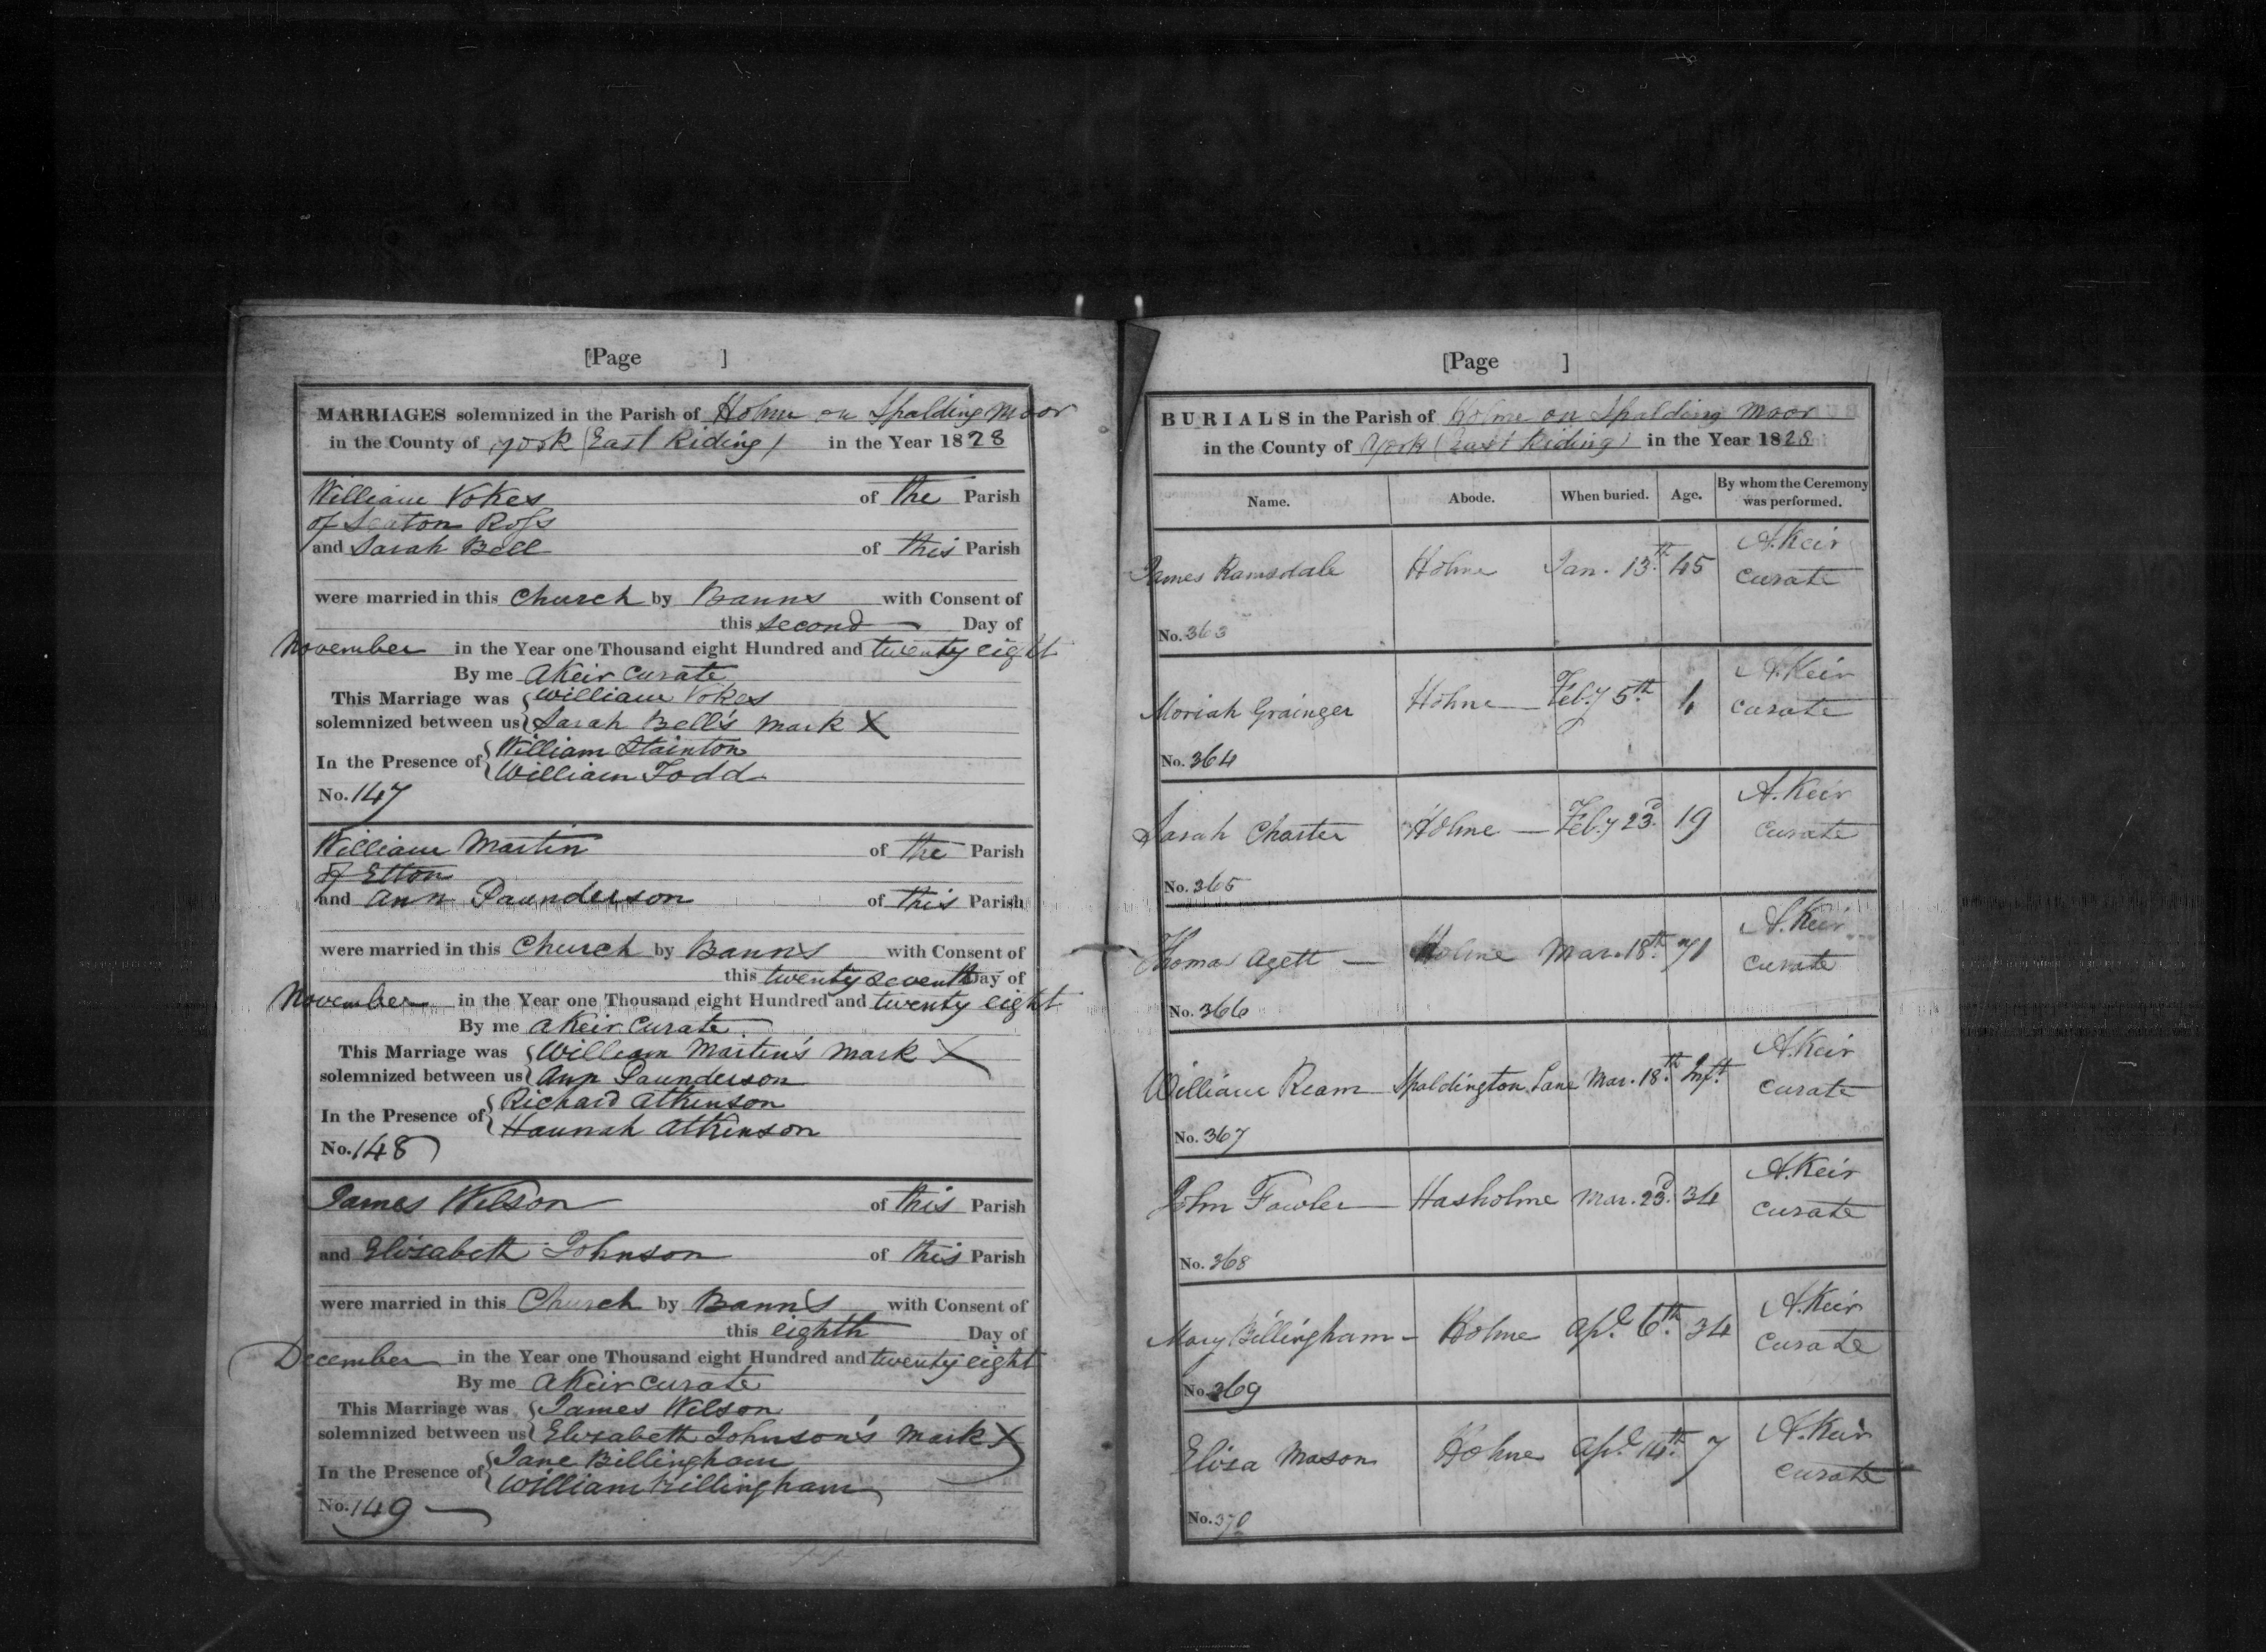 [Page ]
MARRIAGES solemnized in the Parish of Holme on Spalding Moor
in the County of york (East Riding) in the Year 1828
William Vokes of the Parish
of Seaton Ross
and Sarah Bell of this Parish
were married in this Church by Banns with Consent of
this second Day of
November in the Year one Thousand eight Hundred and twenty eight
By me A Keir Curate
This Marriage was William Vokes
solemnized between us Sarah Bell's mark X
In the Presence of William Stainton
William Todd
No. 147
William Martin of the Parish
of Etton
and Ann Saunderson of this Parish
were married in this Church by Banns with Consent of
this twenty seventh Day of
November in the Year one Thousand eight Hundred and twenty eight
By me A Keir Curate
This Marriage was William Martin's mark X
solemnized between us Ann Saunderson
In the Presence of Richard Atkinson
Hannah Atkinson
No. 148
James Wilson of this Parish
and Elizabeth Johnson of this Parish
were married in this Church by Banns with Consent of
this eighth Day of
December in the Year one Thousand eight Hundred and twenty eight
By me A Keir Curate
This Marriage was James Wilson
solemnized between us Elizabeth Johnson's mark X
In the Presence of Jane Billingham
William Billingham
No. 149
[Page ]
BURIALS in the Parish of Holme on Spalding Moor
in the County of York (East Riding) in the Year 1828
Name. Abode. When buried. Age. By whom the Ceremony was performed.
James Ramsdale Holme Jan. 13th 45 A. Keir Curate
No. 363
Moriah Grainger Holme Feb.y 5th 1 A. Keir Curate
No. 364
Sarah Charter Holme Feb.y 23d 19 A. Keir Curate
No. 365
Thomas Agett Holme Mar. 18th 71 A. Keir Curate
No. 366
William Ream Spaldington Lane Mar. 18th Inft. A. Keir Curate
No. 367
John Fowler Hasholme Mar. 23d 34 A. Keir Curate
No. 368
Mary Billingham Holme Apl. 6th 34 A. Keir Curate
No. 369
Eliza Mason Holme Apl. 14th 7 A. Keir Curate
No. 370